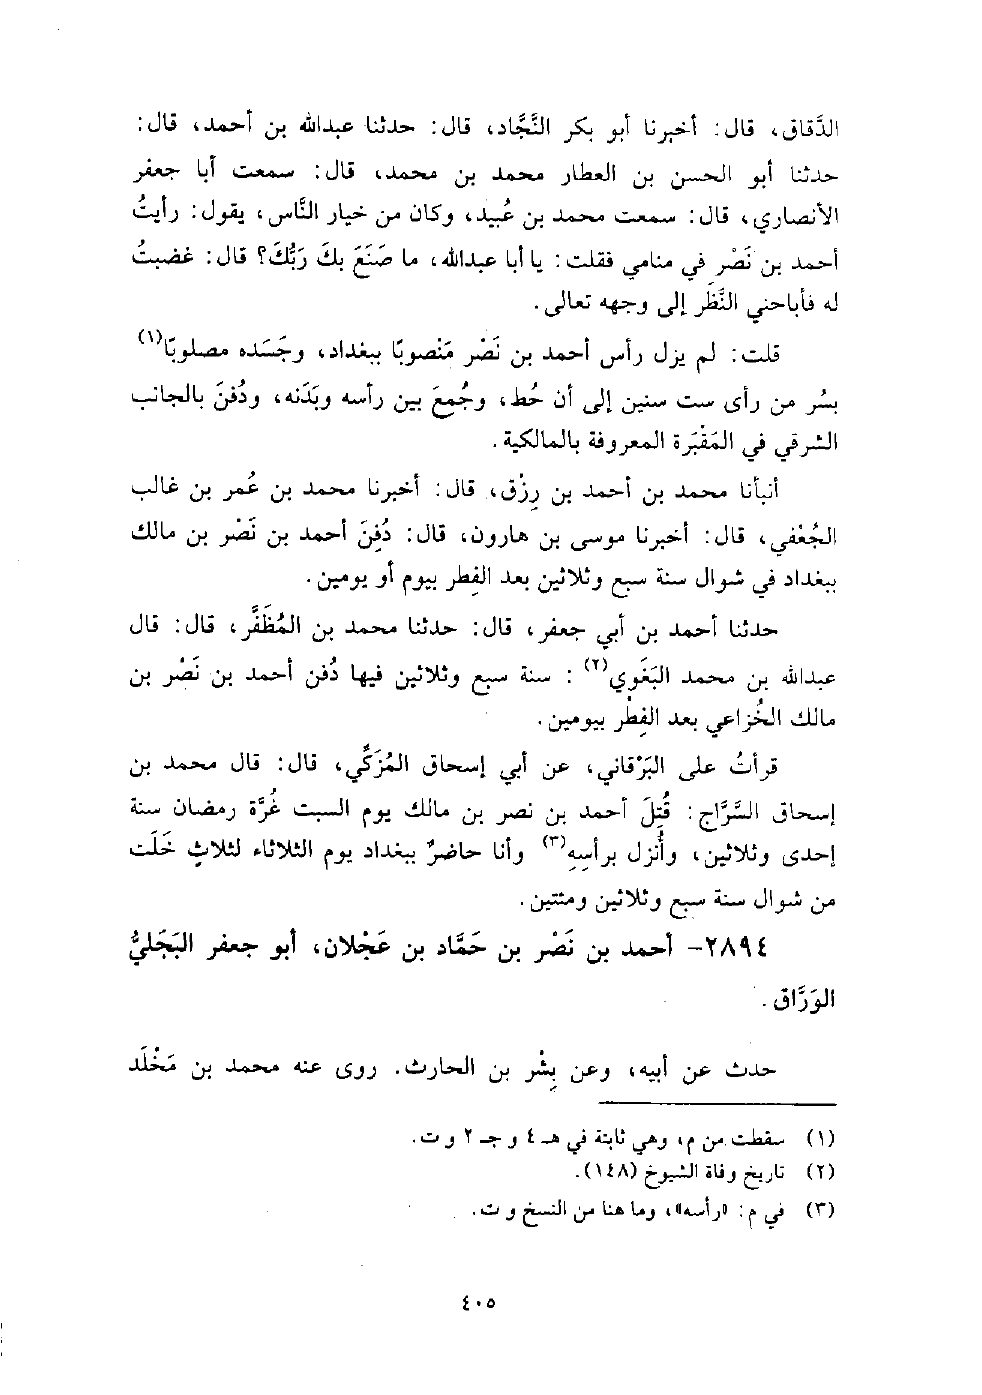 الدَّقاق، قال: أخبرنا أبو بكر النَّجَّاد، قال: حدثنا عبدالله بن أحمد، قال:
حدثنا أبو الحسن بن العطار محمد بن محمد، قال: سمعت أبا جعفر
الأنصاري، قال: سمعت محمد بن عُبيد، وكان من خيار النَّاس، يقول: رأيتُ
أحمد بن نَصْر في منامي فقلت: يا أبا عبدالله، ما صَنَعَ بكَ رَبُّكَ؟ قال: غضبتُ
له فأباحني النَّظَر إلى وجهه تعالى.
قلت: لم يزل رأس أحمد بن نَصْر مَنْصوبًا ببغداد، وجَسَده مصلوبًا(١)
بسُر من رأى ست سنين إلى أن حُط، وجُمعَ بين رأسه وبَدَنه، ودُفنَ بالجانب
الشرقي في المَقْبَرة المعروفة بالمالكية.
أنبأنا محمد بن أحمد بن رِزْق، قال: أخبرنا محمد بن عُمر بن غالب
الجُعْفي، قال: أخبرنا موسى بن هارون، قال: دُفِنَ أحمد بن نَصْر بن مالك
ببغداد في شوال سنة سبع وثلاثين بعد الفِطر بيوم أو يومين.
حدثنا أحمد بن أبي جعفر، قال: حدثنا محمد بن المُظَفَّر، قال: قال
عبدالله بن محمد البَغَوي(٢) : سنة سبع وثلاثين فيها دُفن أحمد بن نَصْر بن
مالك الخُزاعي بعد الفِطْر بيومين.
قرأتُ على البَرْقاني، عن أبي إسحاق المُزَكِّي، قال: قال محمد بن
إسحاق السَّرَّاج: قُتِلَ أحمد بن نصر بن مالك يوم السبت غُرَّة رمضان سنة
إحدى وثلاثين، وأُنزل برأسِه(٣) وأنا حاضرٌ ببغداد يوم الثلاثاء لثلاثٍ خَلَت
من شوال سنة سبع وثلاثين ومئتين.
٢٨٩٤- أحمد بن نَصْر بن حَمَّاد بن عَجْلان، أبو جعفر البَجَليُّ
الوَرَّاق.
حدث عن أبيه، وعن بِشْر بن الحارث. روى عنه محمد بن مَخْلَد
(١) سقطت من م، وهي ثابتة في هـ ٤ و جـ ٢ و ت.
(٢) تاريخ وفاة الشيوخ (١٤٨).
(٣) في م: «رأسه»، وما هنا من النسخ و ت.
٤٠٥